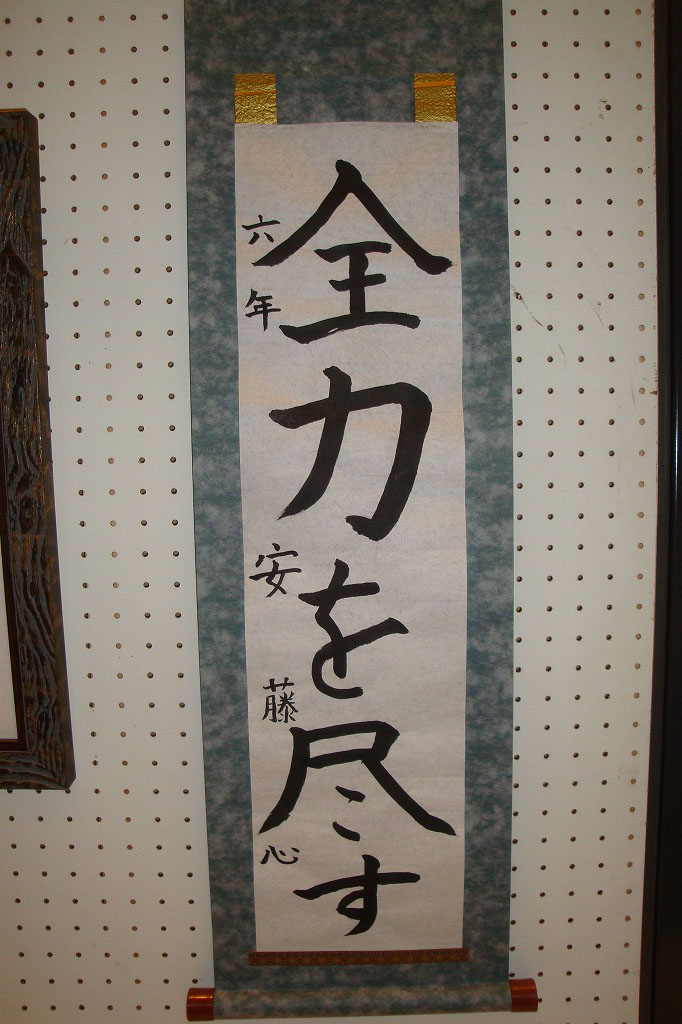 全力を尽す
六年 安藤心